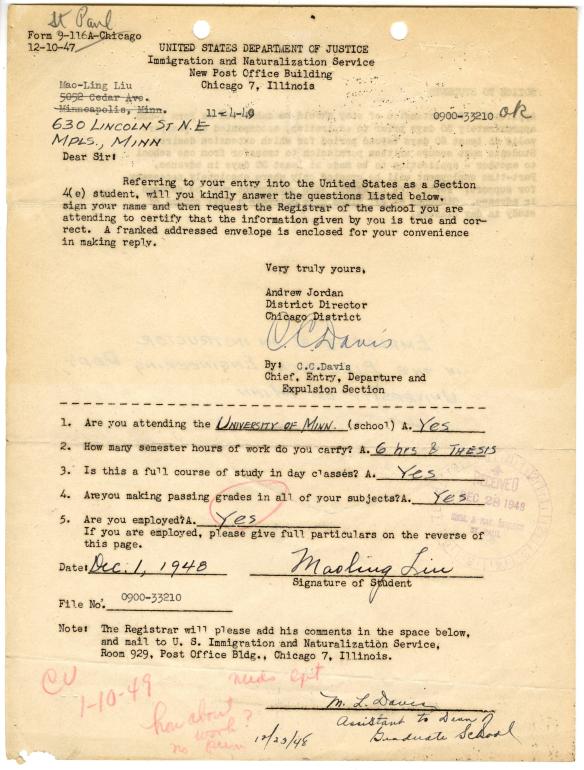 St Paul
Form 9-116A-Chicago
12-10-47
UNITED STATES DEPARTMENT OF JUSTICE
Immigration and Naturalization Service
New Post Office Building
Chicago 7, Illinois
Mao-Ling Liu
5052 Cedar Ave.
Minneapolis, Minn.
11-4-49
0900-33210 OK
630 LINCOLN ST N.E
MPLS., MINN
Dear Sir:
Referring to your entry into the United States as a Section
4(e) student, will you kindly answer the questions listed below,
sign your name and then request the Registrar of the school you are
attending to certify that the information given by you is true and cor-
rect. A franked addressed envelope is enclosed for your convenience
in making reply.
Very truly yours,
Andrew Jordan
District Director
Chicago District
C.C. Davis
By: C.C.Davis
Chief, Entry, Departure and
Expulsion Section
1. Are you attending the UNIVERSITY OF MINN. (school) A. Yes
2. How many semester hours of work do you carry? A. 6 hrs & THESIS
3. Is this a full course of study in day classes? A. Yes
4. Are you making passing grades in all of your subjects?A. Yes
RECEIVED
DEC 28 1948
5. Are you employed?A. Yes
If you are employed, please give full particulars on the reverse of
this page.
Date: Dec. 1, 1948 Maoling Liu
Signature of Student
File No. 0900-33210
Note: The Registrar will please add his comments in the space below,
and mail to U. S. Immigration and Naturalization Service,
Room 929, Post Office Bldg., Chicago 7, Illinois.
CU
1-10-49
needs
how about
work?
no
M. L. Davis
Assistant to Dean of
Graduate School
12/23/48